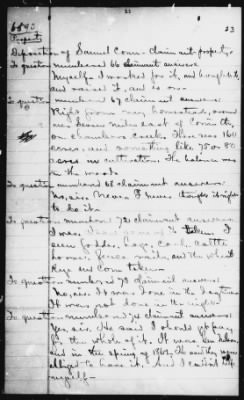 22
23
6590
Property
Deposition of Samuel Conn - claimant property.
To question numbered 66 claimant answers
Myself - I worked for it, and bought it
and raised it, and so on.
To question numbered 67 claimant answers.
Right from my homestead, some
miles east of Corinth,
on chambers creek. There was 160
acres, and something like 75 or 80
acres in cultivation. The balance was
in the woods.
To question numbered 68 claimant answers.
no, sir. Never. I never thought it right
to do it.
To question numbered 72 claimant answers
I was. taken. I
seen fodder, hogs, corn, cattle
horses, fence rails, and the wheat
Rye and Corn taken.
To question numbered 73 claimant answers.
no, sir. It was done in the daytime
It was not done in the night.
To question numbered 74 claimant answers.
Yes, sir. He said I should
for the whole of it. It was
and in the spring of 1863. He said they were
obliged to have it. And I
myself -